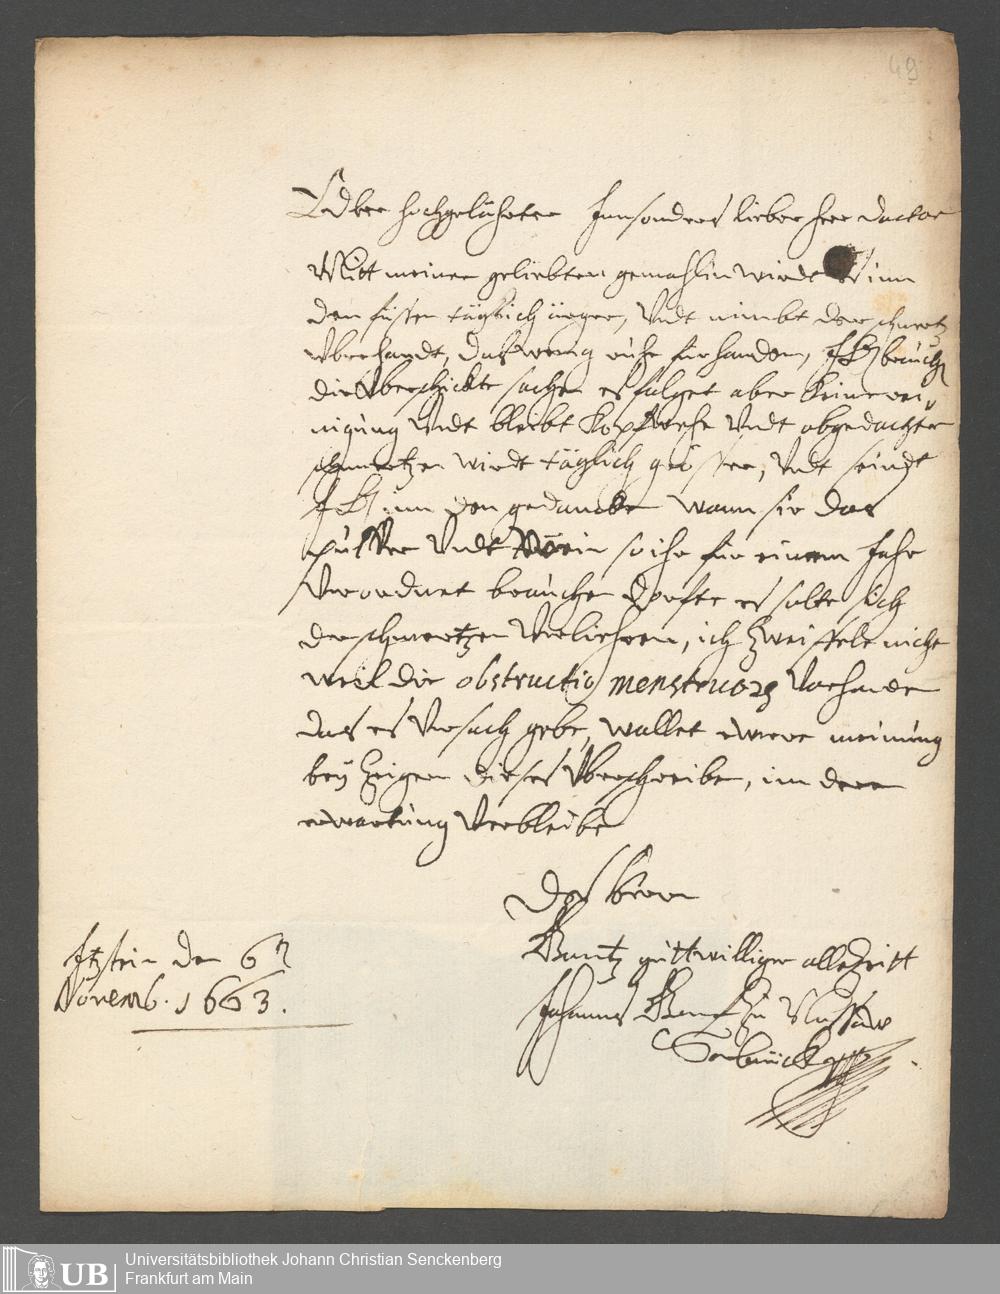 49
Edler hochgelährter Innsonders lieber Herr Doctor
Mitt meiner geliebten gemahlin wirdt inn
den füssen täglich ärger, Undt nimbt der schmertz
Uberhandt, das wenig ruhe fürhanden, brauch
die Uberschickte sachen es folget aber keine rei¬
nigung Undt bleibt kopfwehe Undt obgedachter
schmertzen wirdt täglich grösser, Undt seindt
inn den gedancken wann sie das
pulffer Undt so ihr für einem Jahr
Verordnet brauchen dorfte es solte sich
der schmertzen Verliehren, ich Zweiffele nicht
weil die obstructio menstruorum Vorhanden
das es Ursach gebe, wollet ewere meinung
bey Zeigern dieses Uberschreiben, inn dere
erwartung Verbleibe
Des herrn
Gantz guttwilliger alle Zeitt
Johannes Graf Zu Nassaw
Sarbrück
Itzstein den 6n
Novemb. 1663.
UB
Universitätsbibliothek Johann Christian Senckenberg
Frankfurt am Main